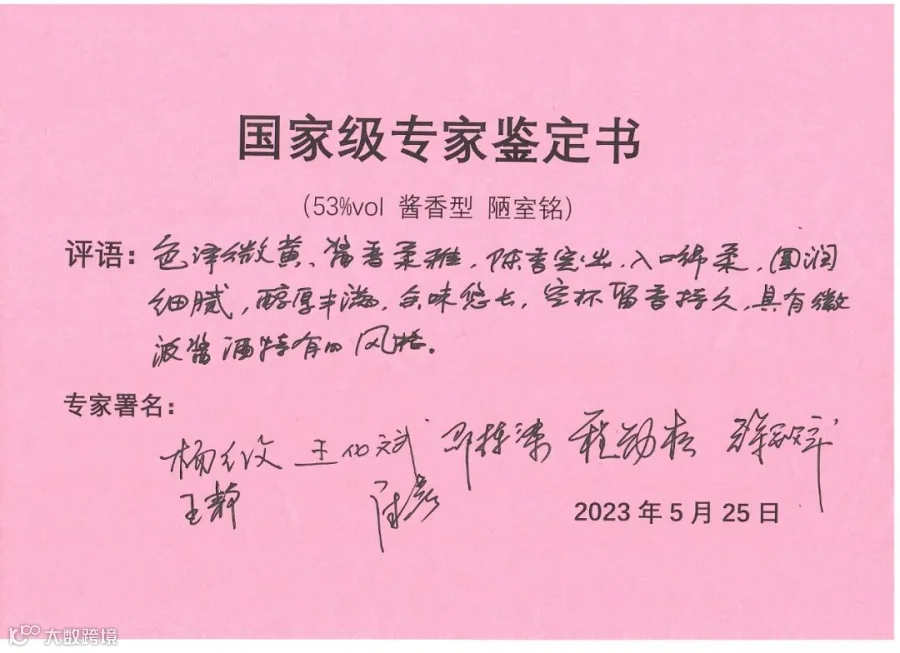 国家级专家鉴定书
(53%vol 酱香型 陋室铭)
评语：色泽微黄、酱香柔雅，陈香突出，入口绵柔，圆润
细腻，醇厚丰满，余味悠长，空杯留香持久，具有微
波酱酒特有的风格。
专家署名：
王静
2023年5月25日
大数跨境